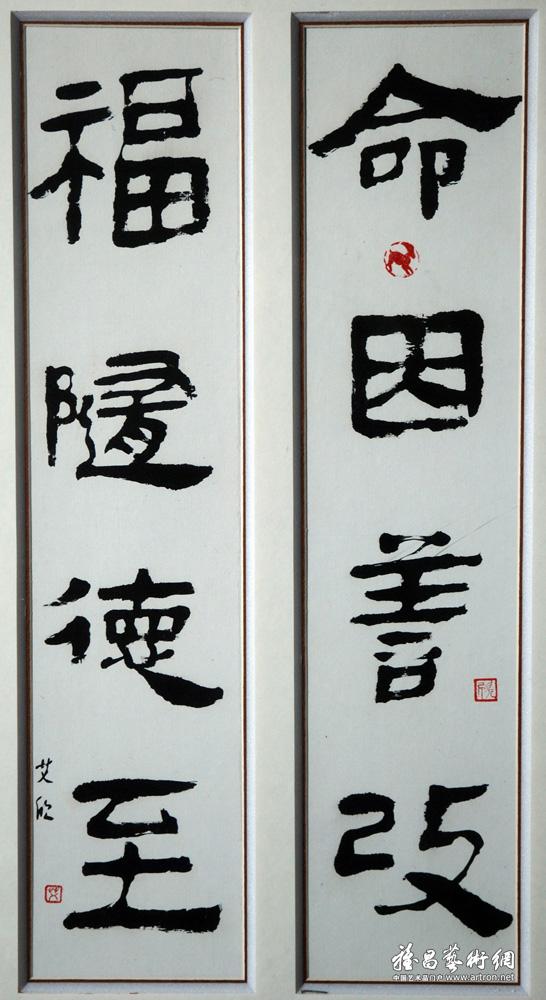 命因善改
福隨德至
艾欣
雅昌藝術網
中国艺术品门户 www.artron.net